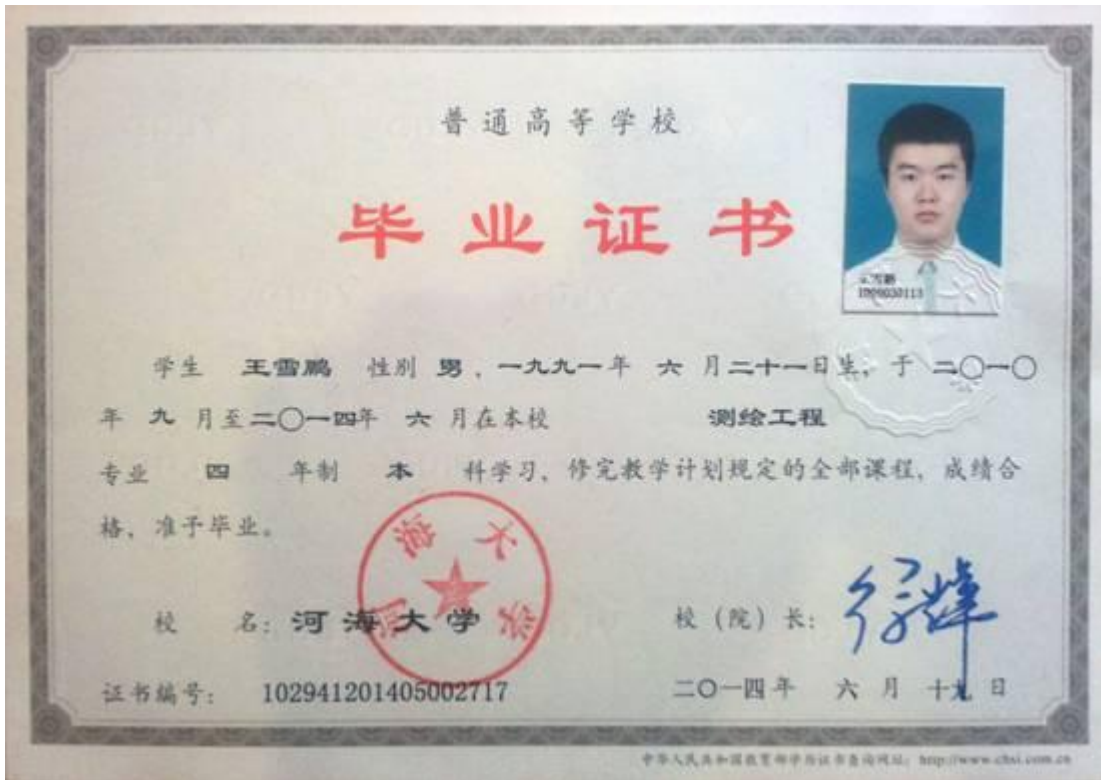 普通高等学校
毕业证书
1009030113
学生 王雪鹏 性别 男，一九九一年 六 月二十一日生，于 二〇一〇
年 九 月至二〇一四年 六 月在本校 测绘工程
专业 四 年制 本 科学习，修完教学计划规定的全部课程，成绩合
格，准予毕业。
河海大学
校 名：河海大学 校（院）长：徐辉
证书编号： 102941201405002717 二〇一四年 六 月 十九 日
中华人民共和国教育部学历证书查询网址：http://www.chsi.com.cn